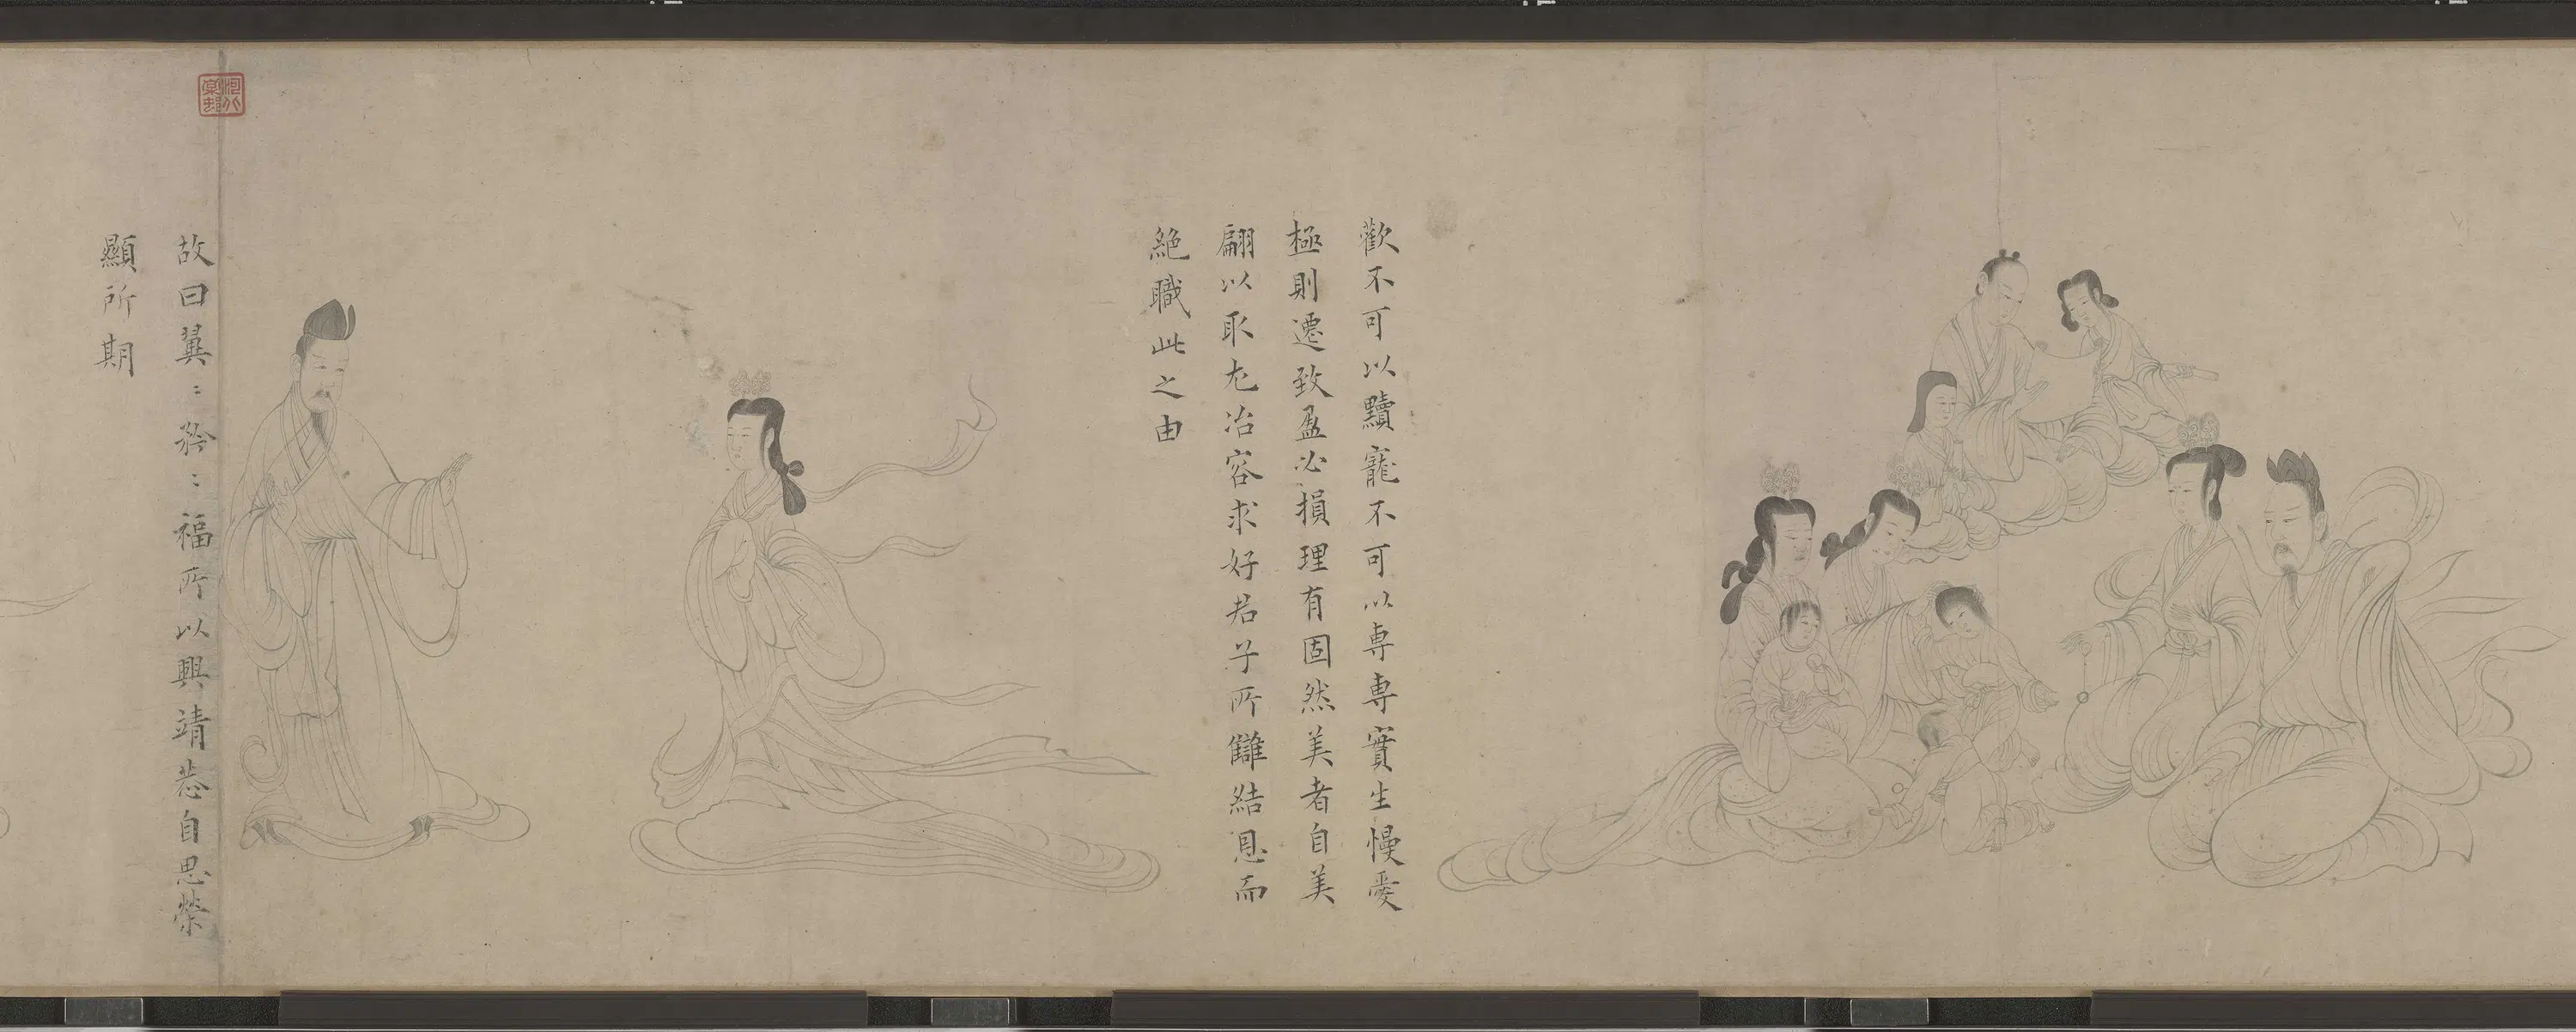 歡不可以黷寵不可以専専實生慢愛
極則遷致盈必損理有固然美者自美
翩以取尤冶容求好君子所讎結恩而
絶職此之由
故曰翼〻矜〻福所以興靖恭自思榮
顯所期